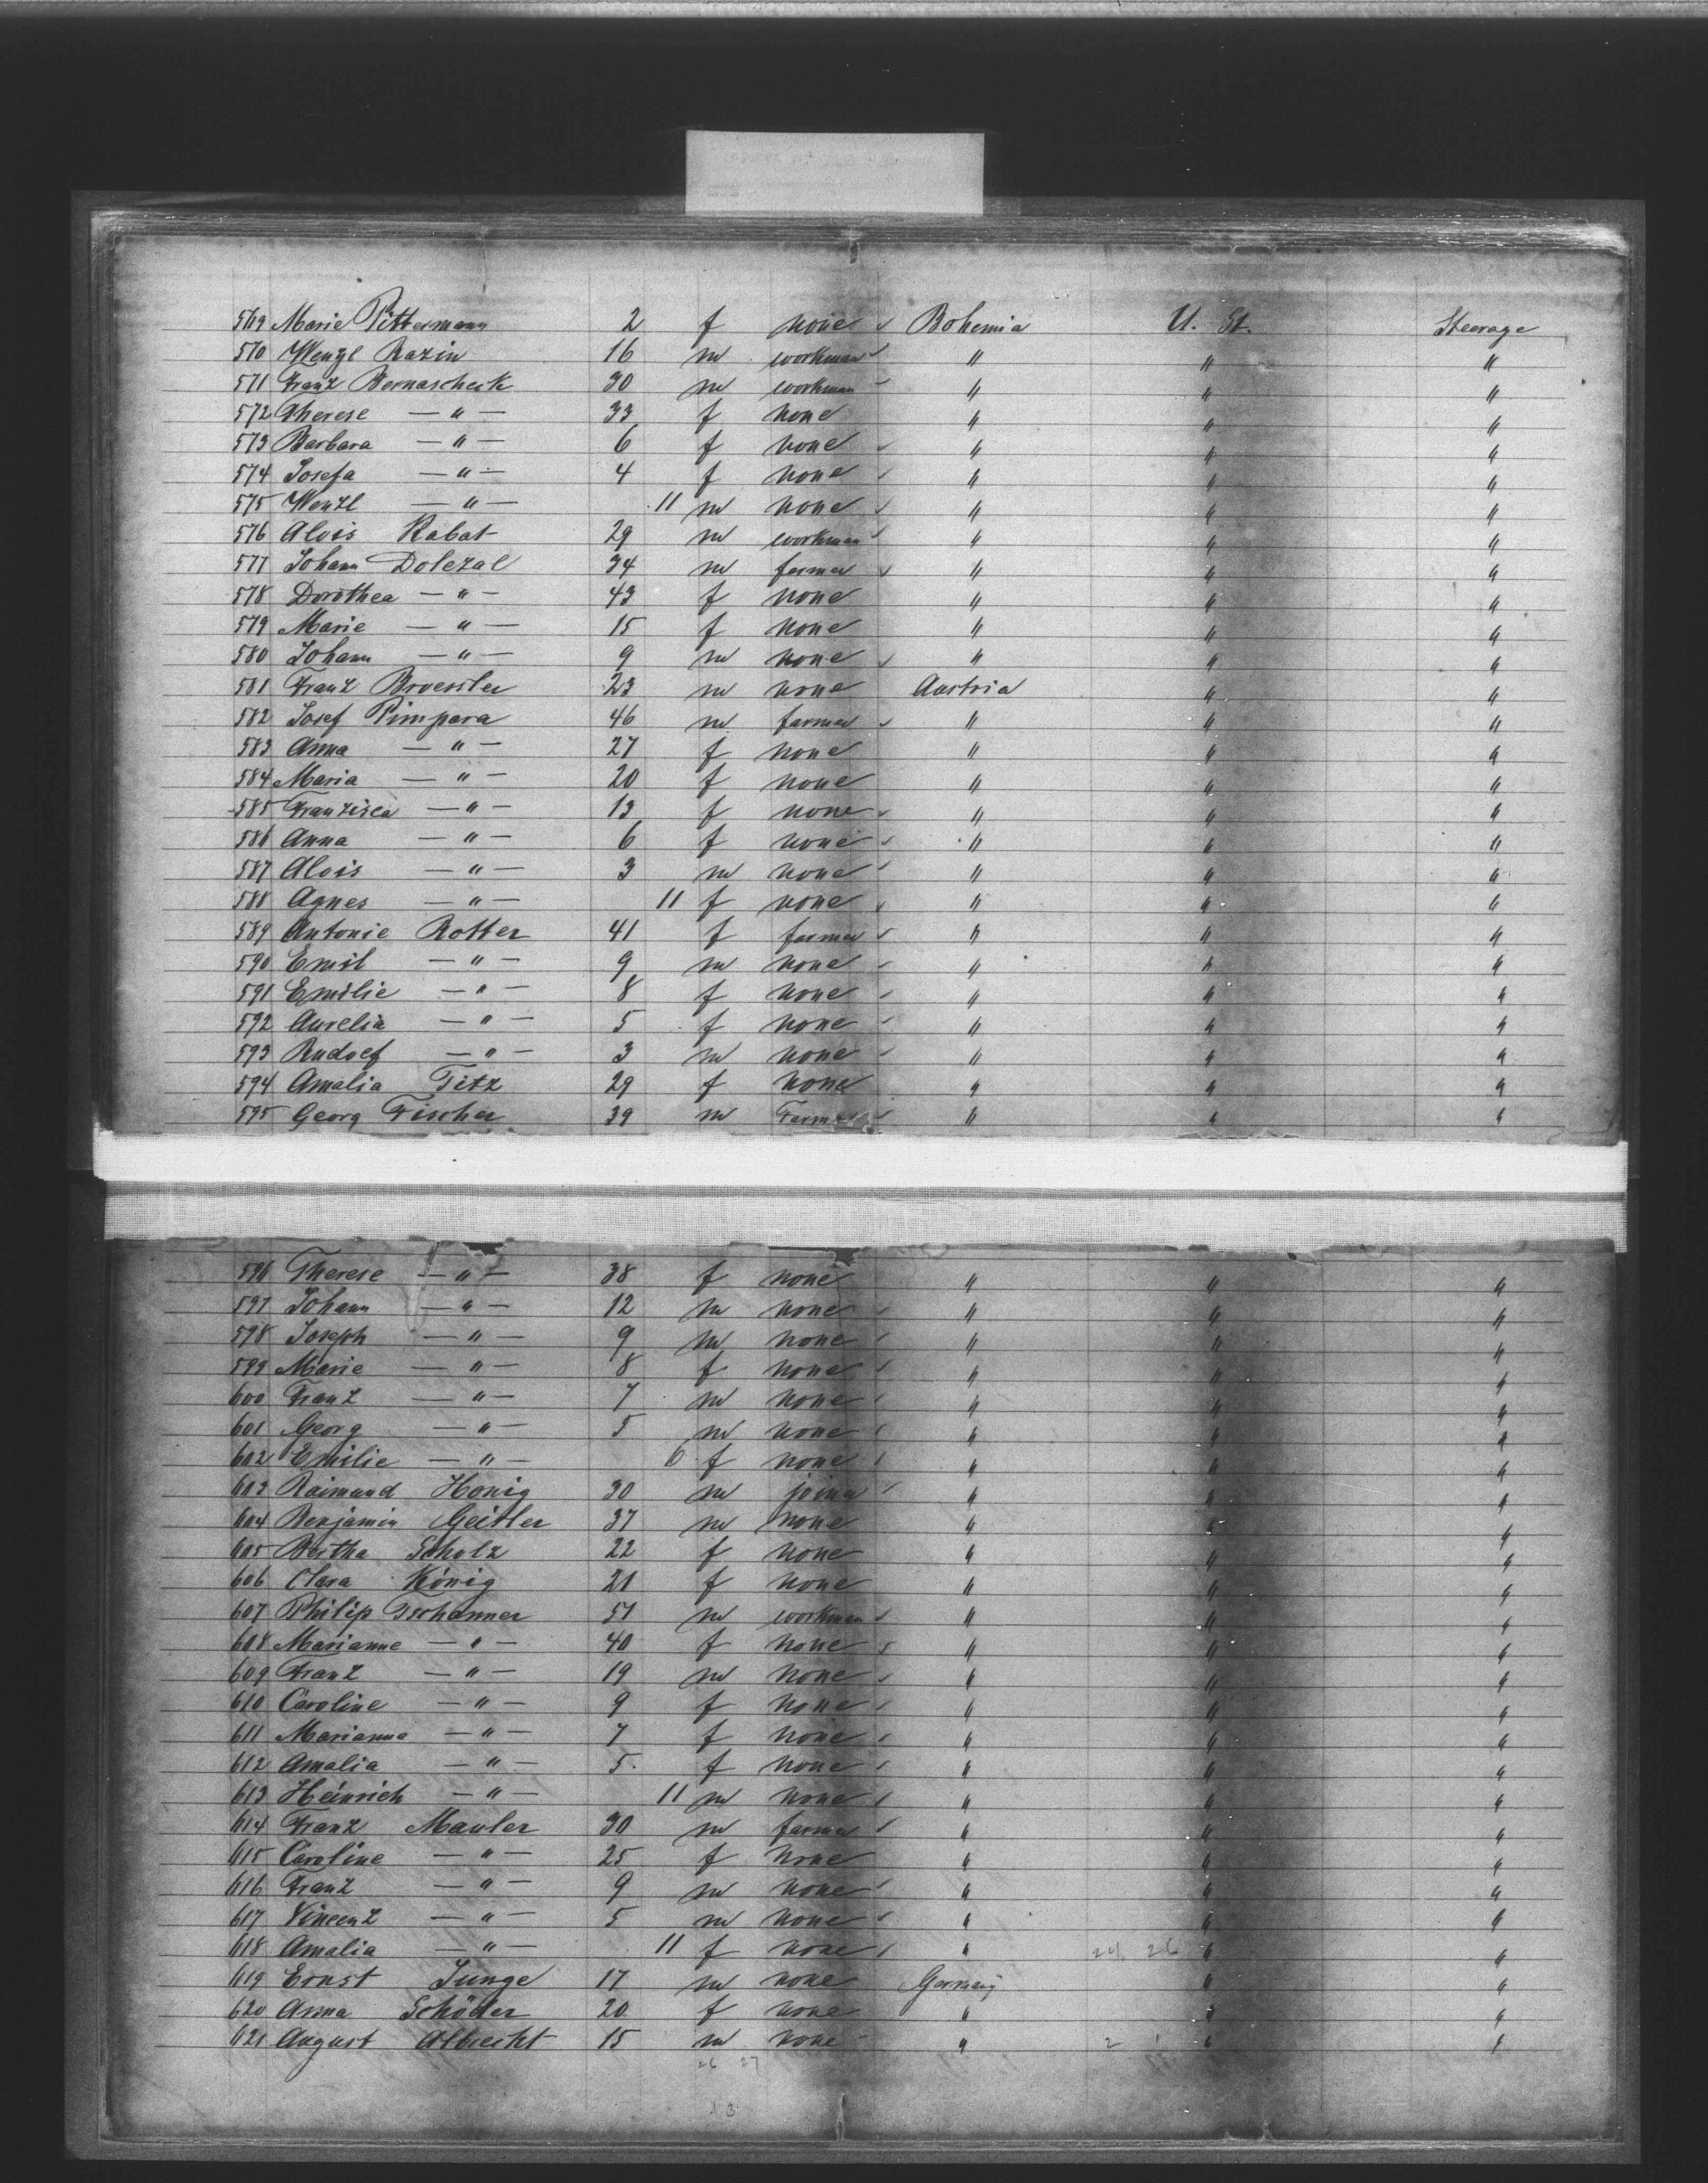 569 Marie Pittermann 2 f none Bohemia U. St. Steerage
570 Wenzl Razin 16 m workman " " "
571 Franz Bernascheck 30 m workman " " "
572 Therese — " — 33 f none " " "
573 Barbara — " — 6 f none " " "
574 Josefa — " — 4 f none " " "
575 Wenzl — " — 11 m none " " "
576 Alois Rabat 29 m workman " " "
577 Johann Dolezal 34 m farmer " " "
578 Dorothea — " — 43 f none " " "
579 Marie — " — 15 f none " " "
580 Johann — " — 9 m none " " "
581 Franz Broessler 23 m none Austria " "
582 Josef Pimpara 46 m farmer " " "
583 Anna — " — 27 f none " " "
584 Maria — " — 20 f none " " "
585 Franzisca — " — 13 f none " " "
586 Anna — " — 6 f none " " "
587 Alois — " — 3 m none " " "
588 Agnes — " — 11 f none " " "
589 Antonie Rotter 41 f farmer " " "
590 Emil — " — 9 m none " " "
591 Emilie — " — 8 f none " " "
592 Aurelia — " — 5 f none " " "
593 Rudolf — " — 3 m none " " "
594 Amalia Titz 29 f none " " "
595 Georg Fischer 39 m Farmer " " "
596 Therese — " — 38 f none " " "
597 Johann — " — 12 m none " " "
598 Joseph — " — 9 m none " " "
599 Marie — " — 8 f none " " "
600 Franz — " — 7 m none " " "
601 Georg — " — 5 m none " " "
602 Emilie — " — 6 f none " " "
603 Raimund Honig 30 m joiner " " "
604 Benjamin Geitler 37 m none " " "
605 Bertha Scholz 22 f none " " "
606 Clara König 21 f none " " "
607 Philip Tschanner 51 m workman " " "
608 Marianne — " — 40 f none " " "
609 Franz — " — 19 m none " " "
610 Caroline — " — 9 f none " " "
611 Marianna — " — 7 f none " " "
612 Amalia — " — 5 f none " " "
613 Heinrich — " — 11 m none " " "
614 Franz Mauler 30 m farmer " " "
615 Caroline — " — 25 f none " " "
616 Franz — " — 9 m none " " "
617 Vincenz — " — 5 m none " " "
618 Amalia — " — 11 f none " 24, 26 " "
619 Ernst Junge 17 m none Germany " "
620 Anna Schöder 20 f none " " "
621 August Albrecht 15 m none " 2 " "
26 27